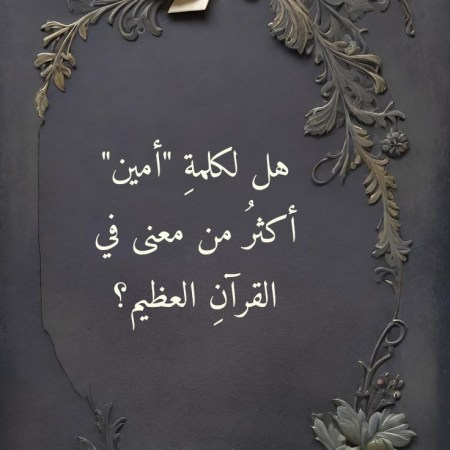 هل لكلمةِ "أمين"
أكثرُ من معنى في
القرآنِ العظيم؟